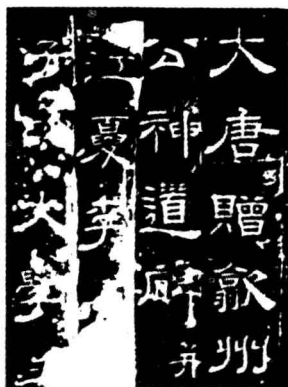 大唐贈歙州
公神道碑并
江夏李
大學